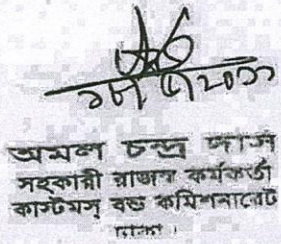 অমল চন্দ্র দাস
সহকারী রাজস্ব কর্মকর্তা
কাস্টমস্ বন্ড কমিশনারেট
ঢাকা।